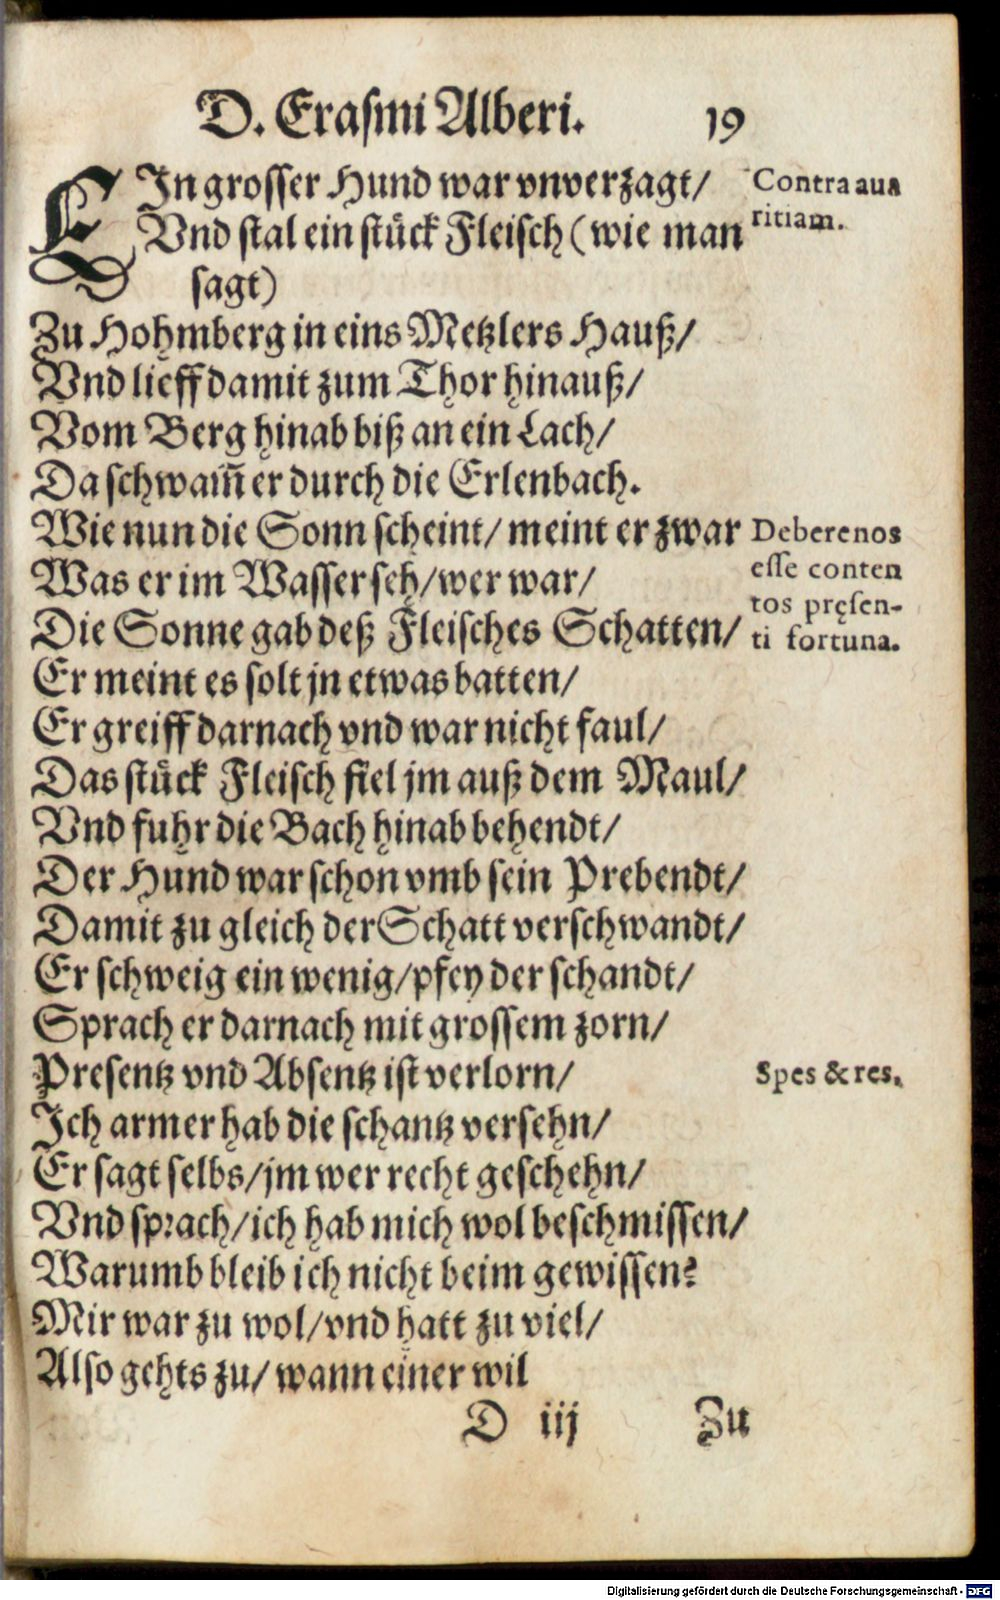 D. Erasmi Alberi. 19
EJn grosser Hund war vnverzagt/
Vnd stal ein stůck Fleisch (wie man
sagt)
Contra aua
ritiam.
Zu Hohmberg in eins Metzlers Hauß/
Vnd lieff damit zum Thor hinauß/
Vom Berg hinab biß an ein Lach/
Da schwam̃ er durch die Erlenbach.
Wie nun die Sonn scheint/ meint er zwar
Was er im Wasser seh/wer war/
Die Sonne gab deß Fleisches Schatten/
Debere nos
esse conten
tos pręsen-
ti fortuna.
Er meint es solt jn etwas batten/
Er greiff darnach vnd war nicht faul/
Das stůck Fleisch fiel jm auß dem Maul/
Vnd fuhr die Bach hinab behendt/
Der Hund war schon vmb sein Prebendt/
Damit zu gleich der Schatt verschwandt/
Er schweig ein wenig/pfey der schandt/
Sprach er darnach mit grossem zorn/
Presentz vnd Absentz ist verlorn/
Spes & res.
Jch armer hab die schantz versehn/
Er sagt selbs/jm wer recht geschehn/
Vnd sprach/ich hab mich wol beschmissen/
Warumb bleib ich nicht beim gewissen?
Mir war zu wol/vnd hatt zu viel/
Also gehts zu/ wann einer wil
D iij Zu
Digitalisierung gefördert durch die Deutsche Forschungsgemeinschaft - DFG